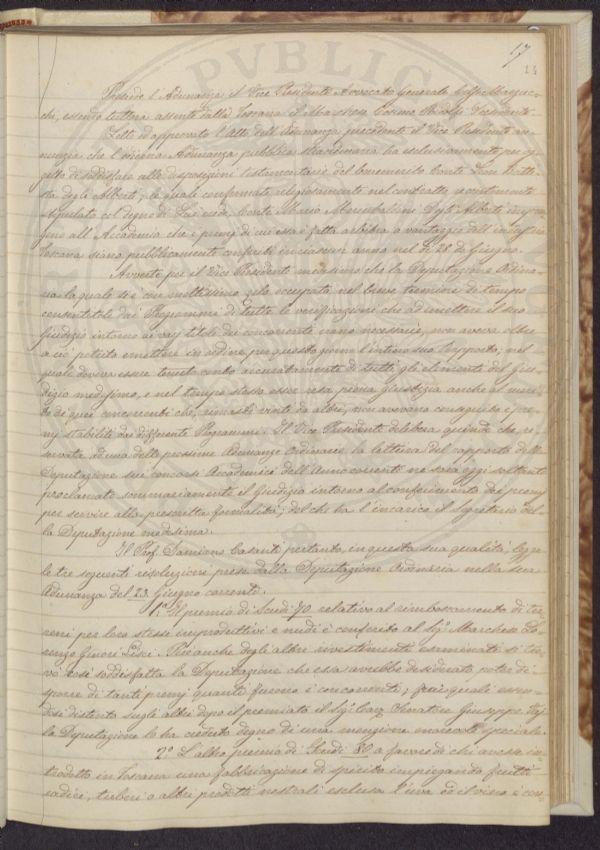 17
14
Presiede l'Adunanza il Vice Presidente Avvocato Generale
che, essendo per lettera assente dalla Toscana il Marchese Cosimo Ridolfi Presidente.
Letti ed approvati l'Atti dell'Adunanza precedente il Vice Presidente an-
nunzia che l'odierna Adunanza pubblica straordinaria ha esclusivamente per og-
getto di soddisfare alle disposizioni testamentarie del benemerito Conte Leon Batti-
sta degli Alberti, le quali confermate religiosamente nel contratto recentemente
stipulato col degno di Lui erede Conte Mario Mori Ubaldini degli Alberti
gono all'Accademia che i premj di cui essa è fatta arbitra a vantaggio dell'industria
Toscana siano pubblicamente conferiti in ciascun anno nel dì 28 di Giugno.
Avverte poi il Vice Presidente medesimo che la Deputazione Ordina-
ria la quale si è con moltissimo zelo occupata nel breve termine di tempo
consentitole dai Programmi di tutte le verificazione che ad emettere il suo
Giudizio intorno ai varj titoli dei concorrenti erano necessarie, non aveva oltre
a ciò potuto emettere in ordine per questo giorno l'intiero suo Rapporto; nel
quale doveva essere tenuto conto accuratamente di tutti gli elementi del Giu-
dizio medesimo, e nel tempo stesso esser resa piena giustizia anche al meri-
to di quei concorrenti che, rimasti vinti da altri, non avevano conseguito i pre-
mj stabiliti dai differenti Programmi. Il Vice Presidente delibera quindi che, ri-
servata ad una delle prossime Adunanze Ordinarie la lettura del rapporto della
Deputazione sui concorsi Accademici dell'Anno corrente ne sarà oggi soltanto
proclamato sommariamente il Giudizio intorno al conferimento dei premj
per servire alla prescritta formalità; del che ha l'incarico il segretario del-
la Deputazione medesima.
Il Prof. Damiano Casanti pertanto, in questa sua qualità, legge
le tre seguenti risoluzioni prese dalla Deputazione Ordinaria nella sua
Adunanza del 23 Giugno corrente.
1.º Il premio di Scudi 70 relativo al rimboscamento di ter-
reni per loro stesse improduttivi e nudi è conferito al Sig.r Marchese Lo-
renzo Ginori Lisci. Ma anche degli altri rivestimenti esaminati si tro-
vò così soddisfatta la Deputazione che essa avrebbe desiderato poter di-
sporre di tanti premj quanti furono i concorrenti; fra i quali essen-
dosi distinto sugli altri dopo il premiato il Sig.r Cav. Giuseppe
la Deputazione lo ha creduto degno di una menzione onorevole speciale.
2.º L'altro premio di Scudi 80 a favore di chi avesse in-
trodotto in Toscana una fabbricazione di spirito impiegando frutti
radici, tuberi o altri prodotti nostrali esclusa l'uva ed il vino è con=